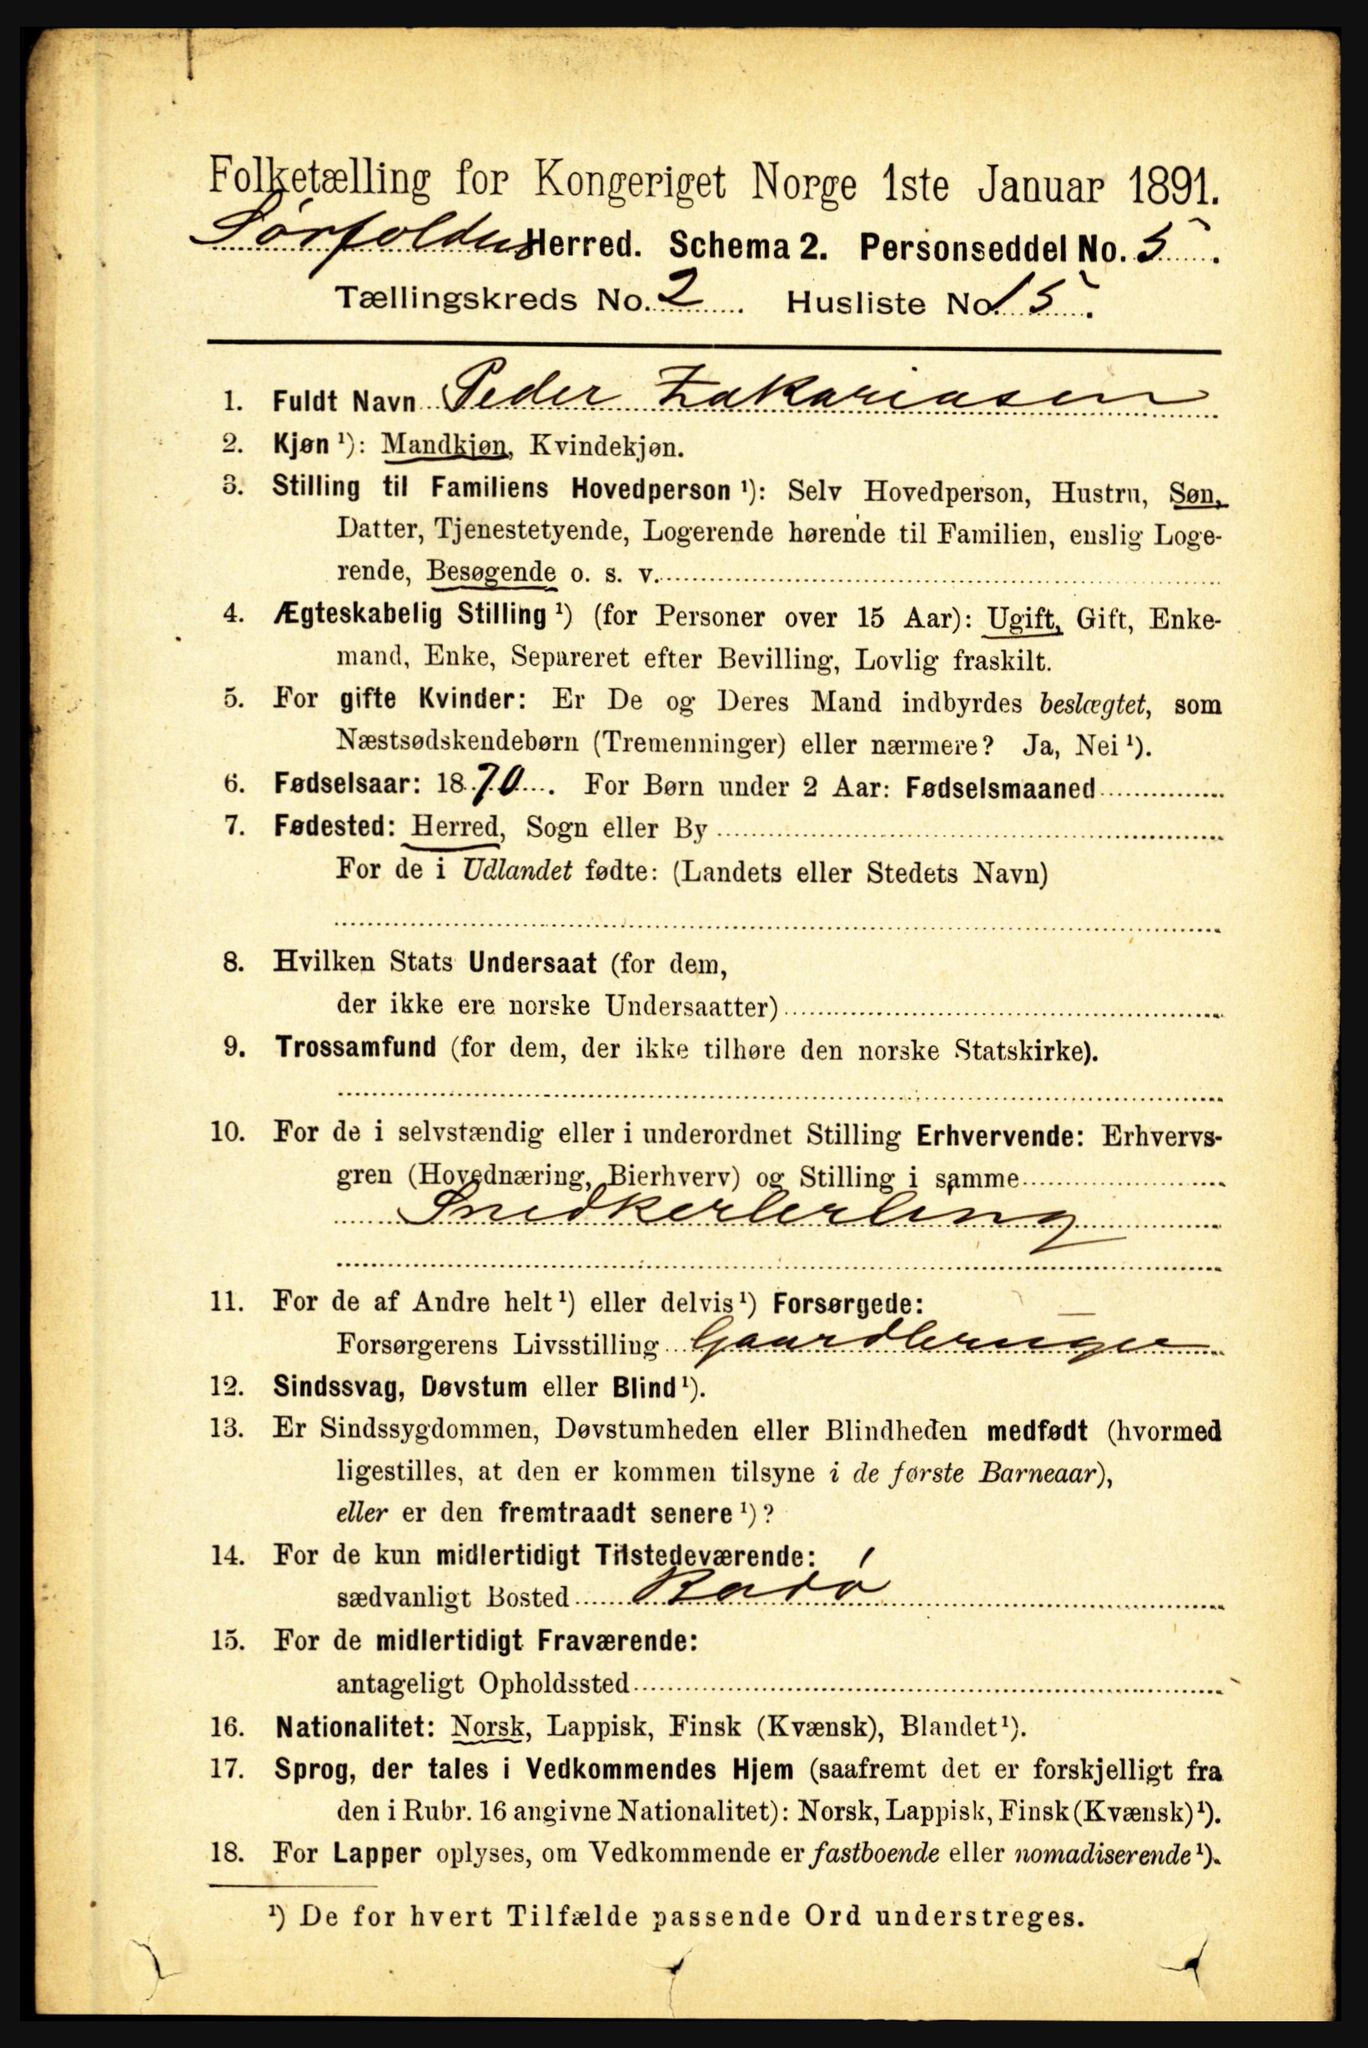 Folketælling for Kongeriget Norge 1ste Januar 1891.
Sørfolden Herred. Schema 2. Personseddel No. 5.
Tællingskreds No. 2. Husliste No. 15.
1. Fuldt Navn Peder Zakariasen
2. Kjøn ¹): Mandkjøn, Kvindekjøn.
3. Stilling til Familiens Hovedperson ¹): Selv Hovedperson, Hustru, Søn,
Datter, Tjenestetyende, Logerende hørende til Familien, enslig Loge-
rende, Besøgende o. s. v.
4. Ægteskabelig Stilling ¹) (for Personer over 15 Aar): Ugift, Gift, Enke-
mand, Enke, Separeret efter Bevilling, Lovlig fraskilt.
5. For gifte Kvinder: Er De og Deres Mand indbyrdes beslægtet, som
Næstsødskendebørn (Tremenninger) eller nærmere? Ja, Nei ¹).
6. Fødselsaar: 1870. For Børn under 2 Aar: Fødselsmaaned
7. Fødested: Herred, Sogn eller By
For de i Udlandet fødte: (Landets eller Stedets Navn)
8. Hvilken Stats Undersaat (for dem,
der ikke ere norske Undersaatter)
9. Trossamfund (for dem, der ikke tilhøre den norske Statskirke).
10. For de i selvstændig eller i underordnet Stilling Erhvervende: Erhvervs-
gren (Hovednæring, Bierhverv) og Stilling i samme
Snedkerlerling
11. For de af Andre helt ¹) eller delvis ¹) Forsørgede:
Forsørgerens Livsstilling Gaardbruger
12. Sindssvag, Døvstum eller Blind ¹).
13. Er Sindssygdommen, Døvstumheden eller Blindheden medfødt (hvormed
ligestilles, at den er kommen tilsyne i de første Barneaar),
eller er den fremtraadt senere ¹)?
14. For de kun midlertidigt Tilstedeværende:
sædvanligt Bosted Bodö
15. For de midlertidigt Fraværende:
antageligt Opholdssted
16. Nationalitet: Norsk, Lappisk, Finsk (Kvænsk), Blandet ¹).
17. Sprog, der tales i Vedkommendes Hjem (saafremt det er forskjelligt fra
den i Rubr. 16 angivne Nationalitet): Norsk, Lappisk, Finsk (Kvænsk) ¹).
18. For Lapper oplyses, om Vedkommende er fastboende eller nomadiserende ¹).
¹) De for hvert Tilfælde passende Ord understreges.